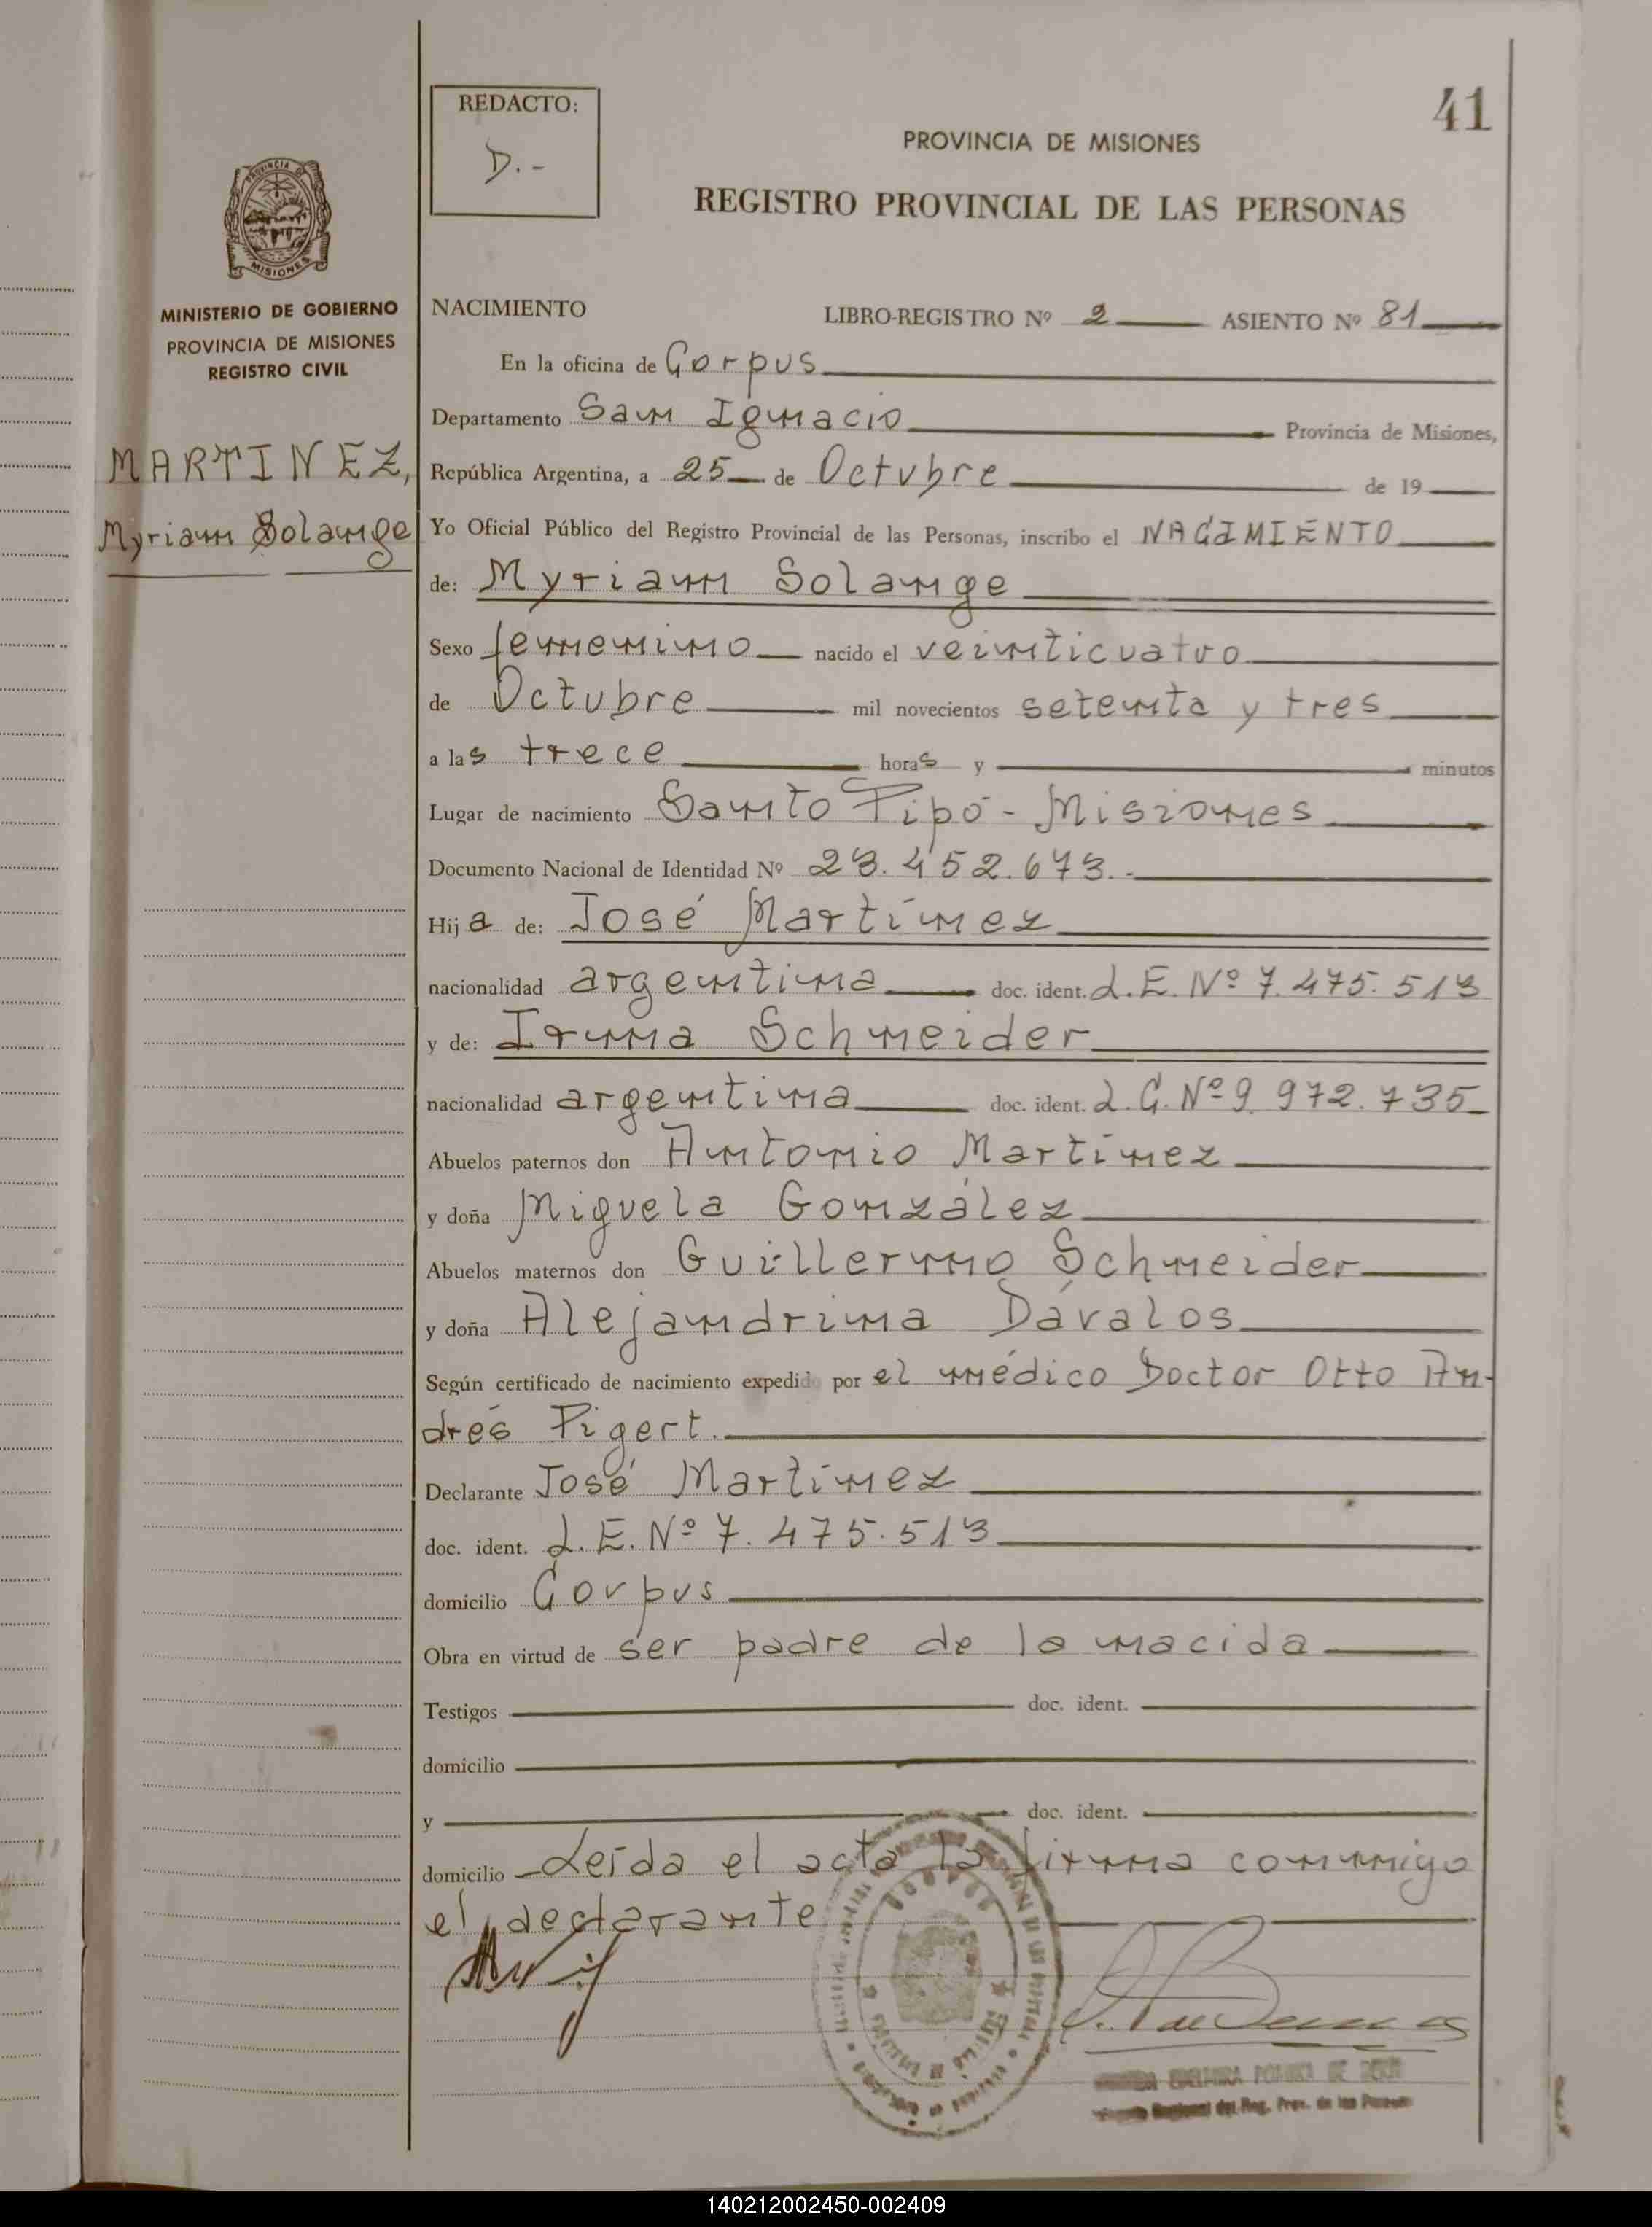 41
REDACTO:
D.-
PROVINCIA DE MISIONES
REGISTRO PROVINCIAL DE LAS PERSONAS
PROVINCIA DE
MISIONES
MINISTERIO DE GOBIERNO
PROVINCIA DE MISIONES
REGISTRO CIVIL
MARTINEZ,
Myriam Solange
NACIMIENTO LIBRO-REGISTRO Nº 2 ASIENTO Nº 81
En la oficina de Corpus
Departamento San Ignacio Provincia de Misiones,
República Argentina, a 25 de Octubre de 19
Yo Oficial Público del Registro Provincial de las Personas, inscribo el NACIMIENTO
de: Myriam Solange
Sexo femenino nacido el veinticuatro
de Octubre mil novecientos setenta y tres
a las trece horas y minutos
Lugar de nacimiento Santo Pipó - Misiones
Documento Nacional de Identidad Nº 23.452.673.-
Hija de: José Martínez
nacionalidad argentina doc. ident. L.E. Nº 7.475.513
y de: Irma Schneider
nacionalidad argentina doc. ident. L.C. Nº 9.972.735
Abuelos paternos don Antonio Martínez
y doña Miguela González
Abuelos maternos don Guillermo Schneider
y doña Alejandrina Dávalos
Según certificado de nacimiento expedido por el médico Doctor Otto An-
drés Pigert.
Declarante José Martínez
doc. ident. L.E. Nº 7.475.513
domicilio Corpus
Obra en virtud de ser padre de la nacida
Testigos doc. ident.
domicilio
y doc. ident.
domicilio Leída el acta la firma conmigo
el declarante
del Reg. Prov. de las Personas
140212002450-002409